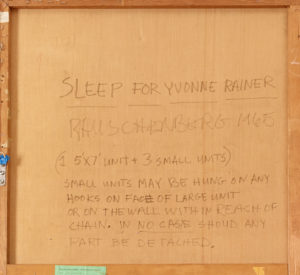 SLEEP FOR YVONNE RAINER
RAUSCHENBERG 1965
(1 5'X7' UNIT + 3 SMALL UNITS)
SMALL UNITS MAY BE HUNG ON ANY
HOOKS ON FACE OF LARGE UNIT
OR ON THE WALL WITHIN REACH OF
CHAIN. IN NO CASE SHOUD ANY
PART BE DETACHED.